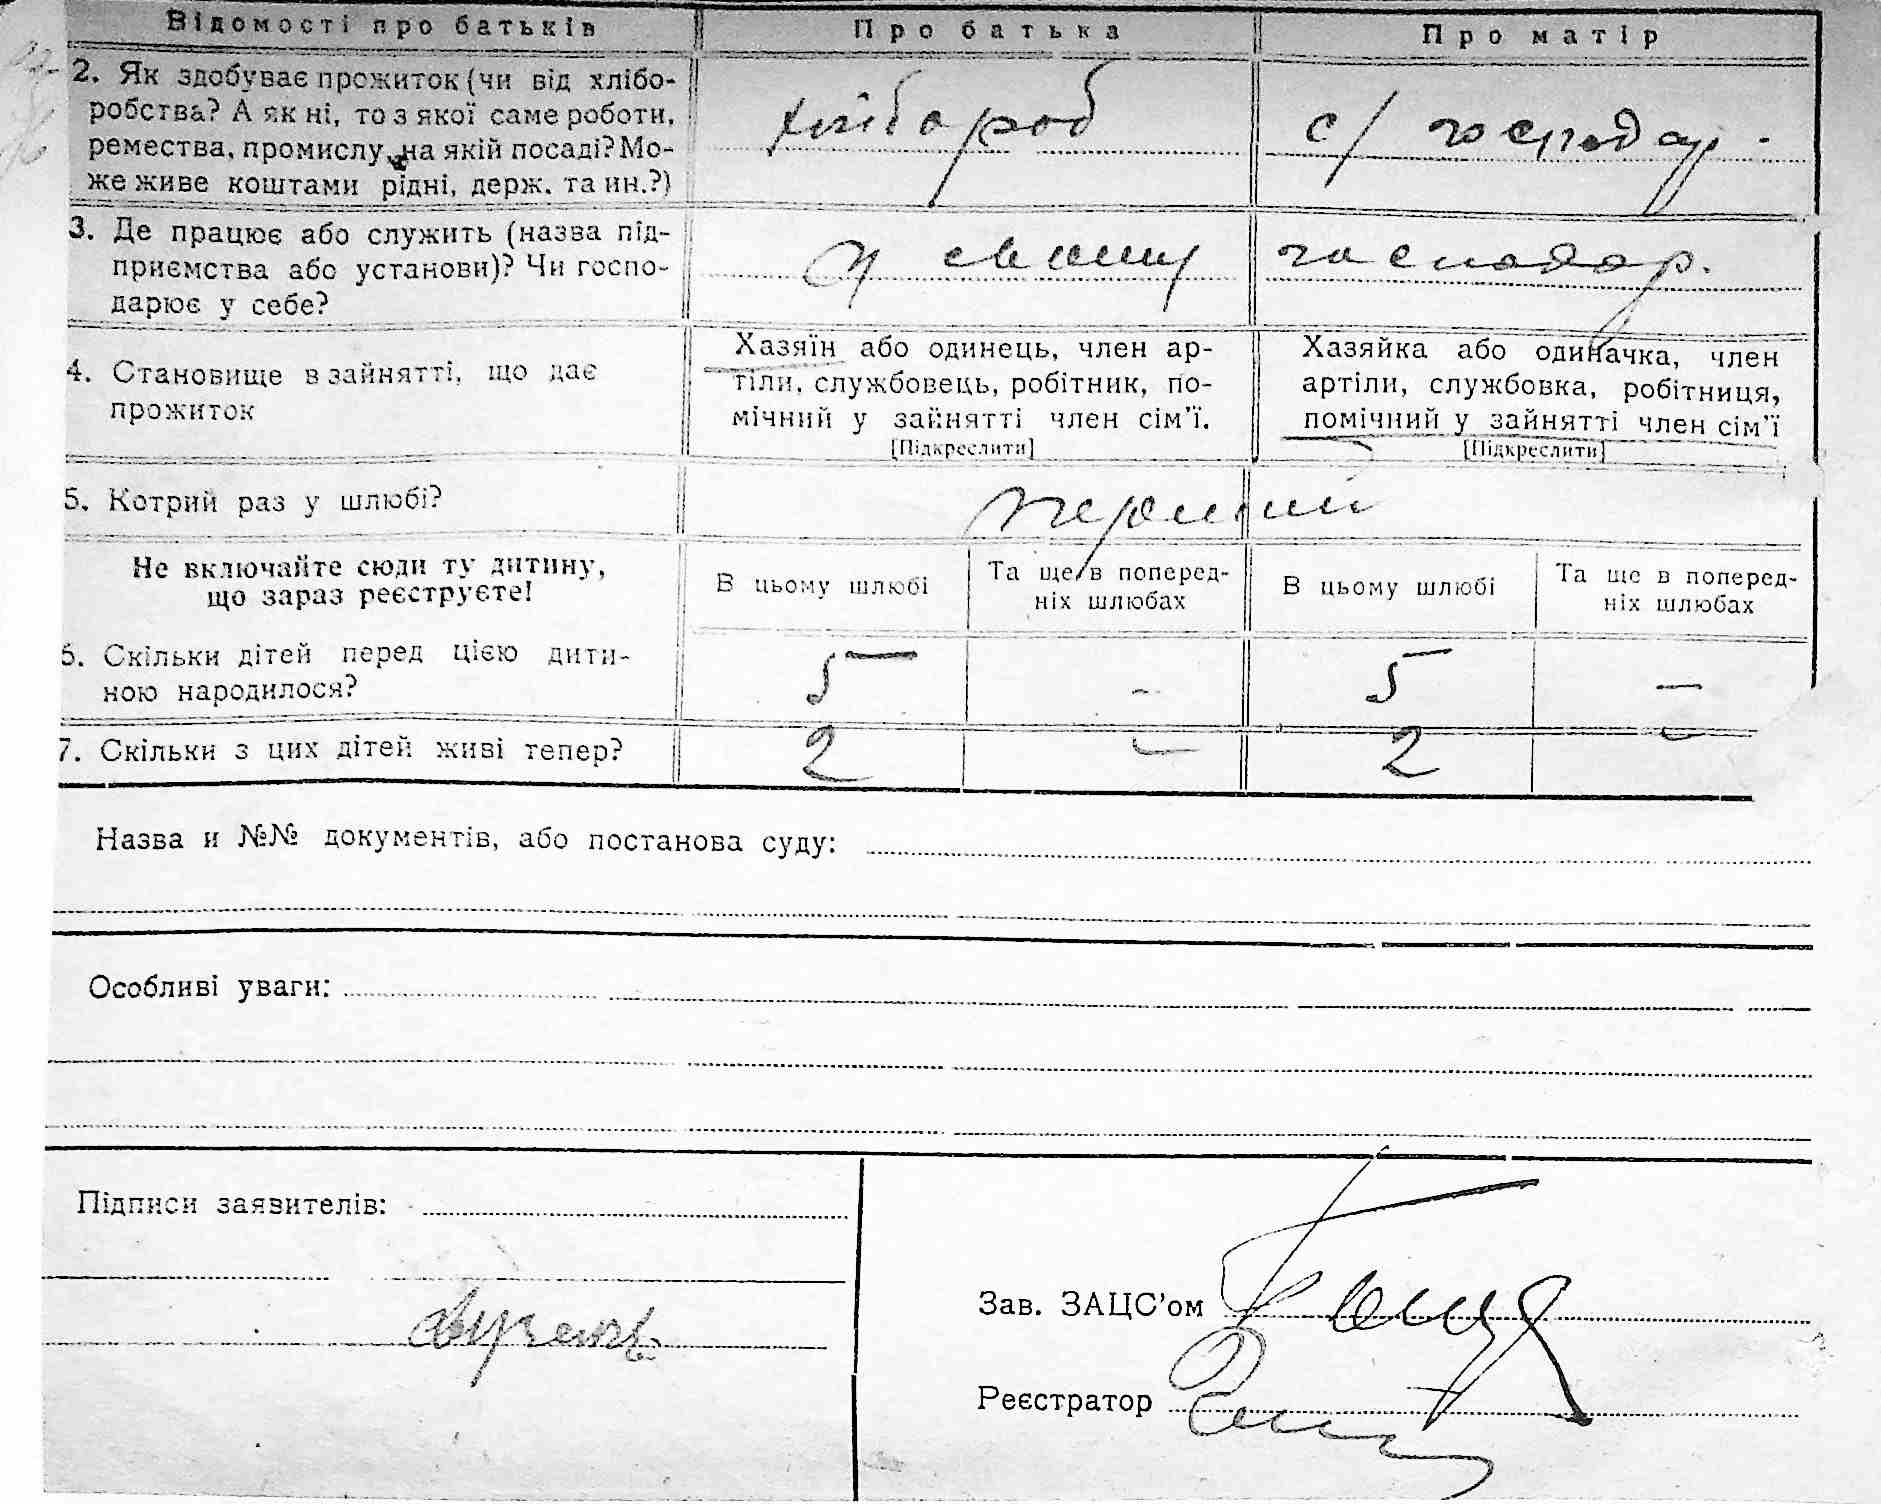 Відомості про батьків Про батька Про матір
2. Як здобуває прожиток (чи від хлібо-
робства? А як ні, то з якої саме роботи,
ремества, промислу, на якій посаді? Мо-
же живе коштами рідні, держ. та ин.?)
хлібороб
с/ господар.
3. Де працює або служить (назва під-
приємства або установи)? Чи госпо-
дарює у себе?
у свому господар.
4. Становище в зайнятті, що дає
прожиток
Хазяїн або одинець, член ар-
тіли, службовець, робітник, по-
мічний у зайнятті член сім'ї.
[Підкреслити]
Хазяйка або одиначка, член
артіли, службовка, робітниця,
помічний у зайнятті член сім'ї
[Підкреслити]
5. Котрий раз у шлюбі?
первий
Не включайте сюди ту дитину,
що зараз реєструєте!
В цьому шлюбі
Та ще в поперед-
ніх шлюбах
В цьому шлюбі
Та ще в поперед-
ніх шлюбах
6. Скільки дітей перед цією дити-
ною народилося?
5 - 5 —
7. Скільки з цих дітей живі тепер?
2 - 2 -
Назва и №№ документів, або постанова суду:
Особливі уваги:
Підписи заявителів:
Зав. ЗАЦС'ом
Реєстратор